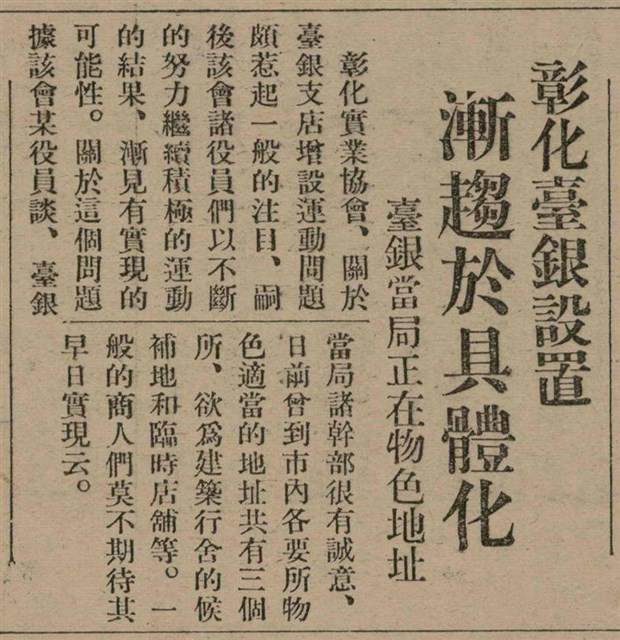 彰化臺銀設置
漸趨於具體化
臺銀當局正在物色地址
彰化實業協會、關於
臺銀支店增設運動問題
頗惹起一般的注目、嗣
後該會諸役員們以不斷
的努力繼續積極的運動
的結果、漸見有實現的
可能性。關於這個問題
據該會某役員談、臺銀
當局諸幹部很有誠意、
日前曾到市內各要所物
色適當的地址共有三個
所、欲爲建築行舍的候
補地和臨時店舖等。一
般的商人們莫不期待其
早日實現云。